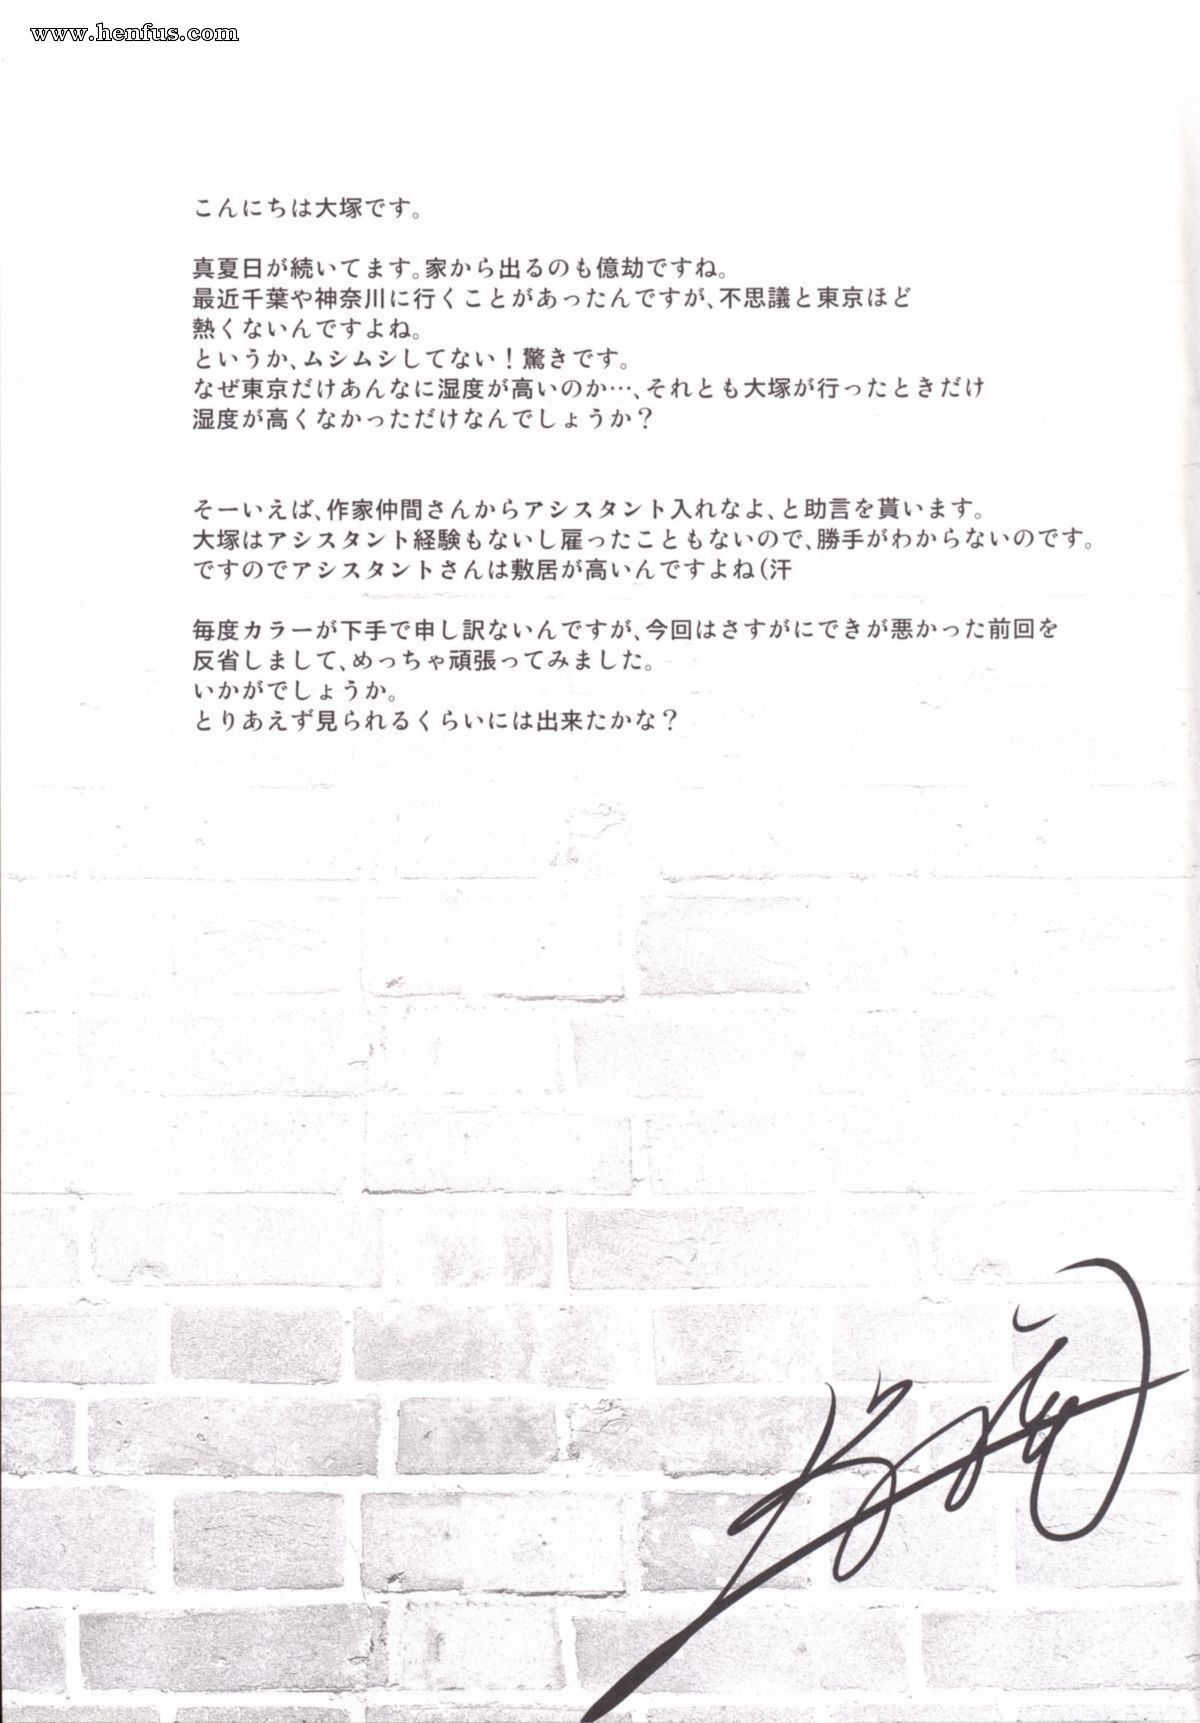 www.henfus.com
こんにちは大塚です。
真夏日が続いてます。家から出るのも億劫ですね。
最近千葉や神奈川に行くことがあったんですが、不思議と東京ほど
熱くないんですよね。
というか、ムシムシしてない！驚きです。
なぜ東京だけあんなに湿度が高いのか…、それとも大塚が行ったときだけ
湿度が高くなかっただけなんでしょうか？
そーいえば、作家仲間さんからアシスタント入れなよ、と助言を貰います。
大塚はアシスタント経験もないし雇ったこともないので、勝手がわからないのです。
ですのでアシスタントさんは敷居が高いんですよね(汗
毎度カラーが下手で申し訳ないんですが、今回はさすがにできが悪かった前回を
反省しまして、めっちゃ頑張ってみました。
いかがでしょうか。
とりあえず見られるくらいには出来たかな？